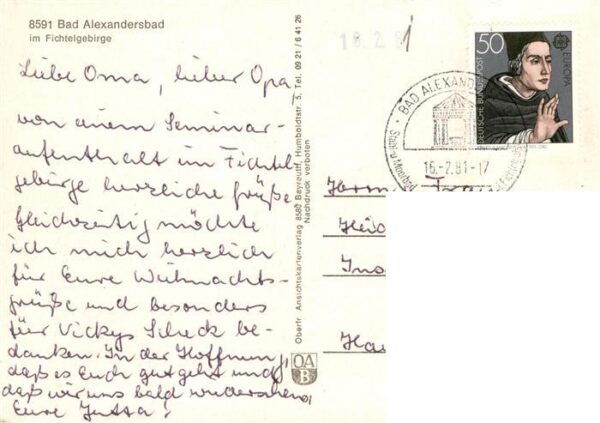 8591 Bad Alexandersbad
im Fichtelgebirge
Liebe Oma, lieber Opa,
von einem Seminar-
aufenthalt im Fichtel-
gebirge herzliche Grüße
Gleichzeitig möchte
ich mich herzlich
für Eure Weihnachts-
grüße und besonders
für Vickys Scheck be-
danken. In der Hoffnung,
daß es Euch gut geht und
daß wir uns bald wiedersehen,
Eure Jutta!
Oberfr. Ansichtskartenverlag 8580 Bayreuth, Humboldtstr. 5, Tel. 09 21 / 6 41 26
Nachdruck verboten
OA
B
18.2.81
50
DEUTSCHE BUNDESPOST
EUROPA
BAD ALEXANDERS
16.-2.81-17